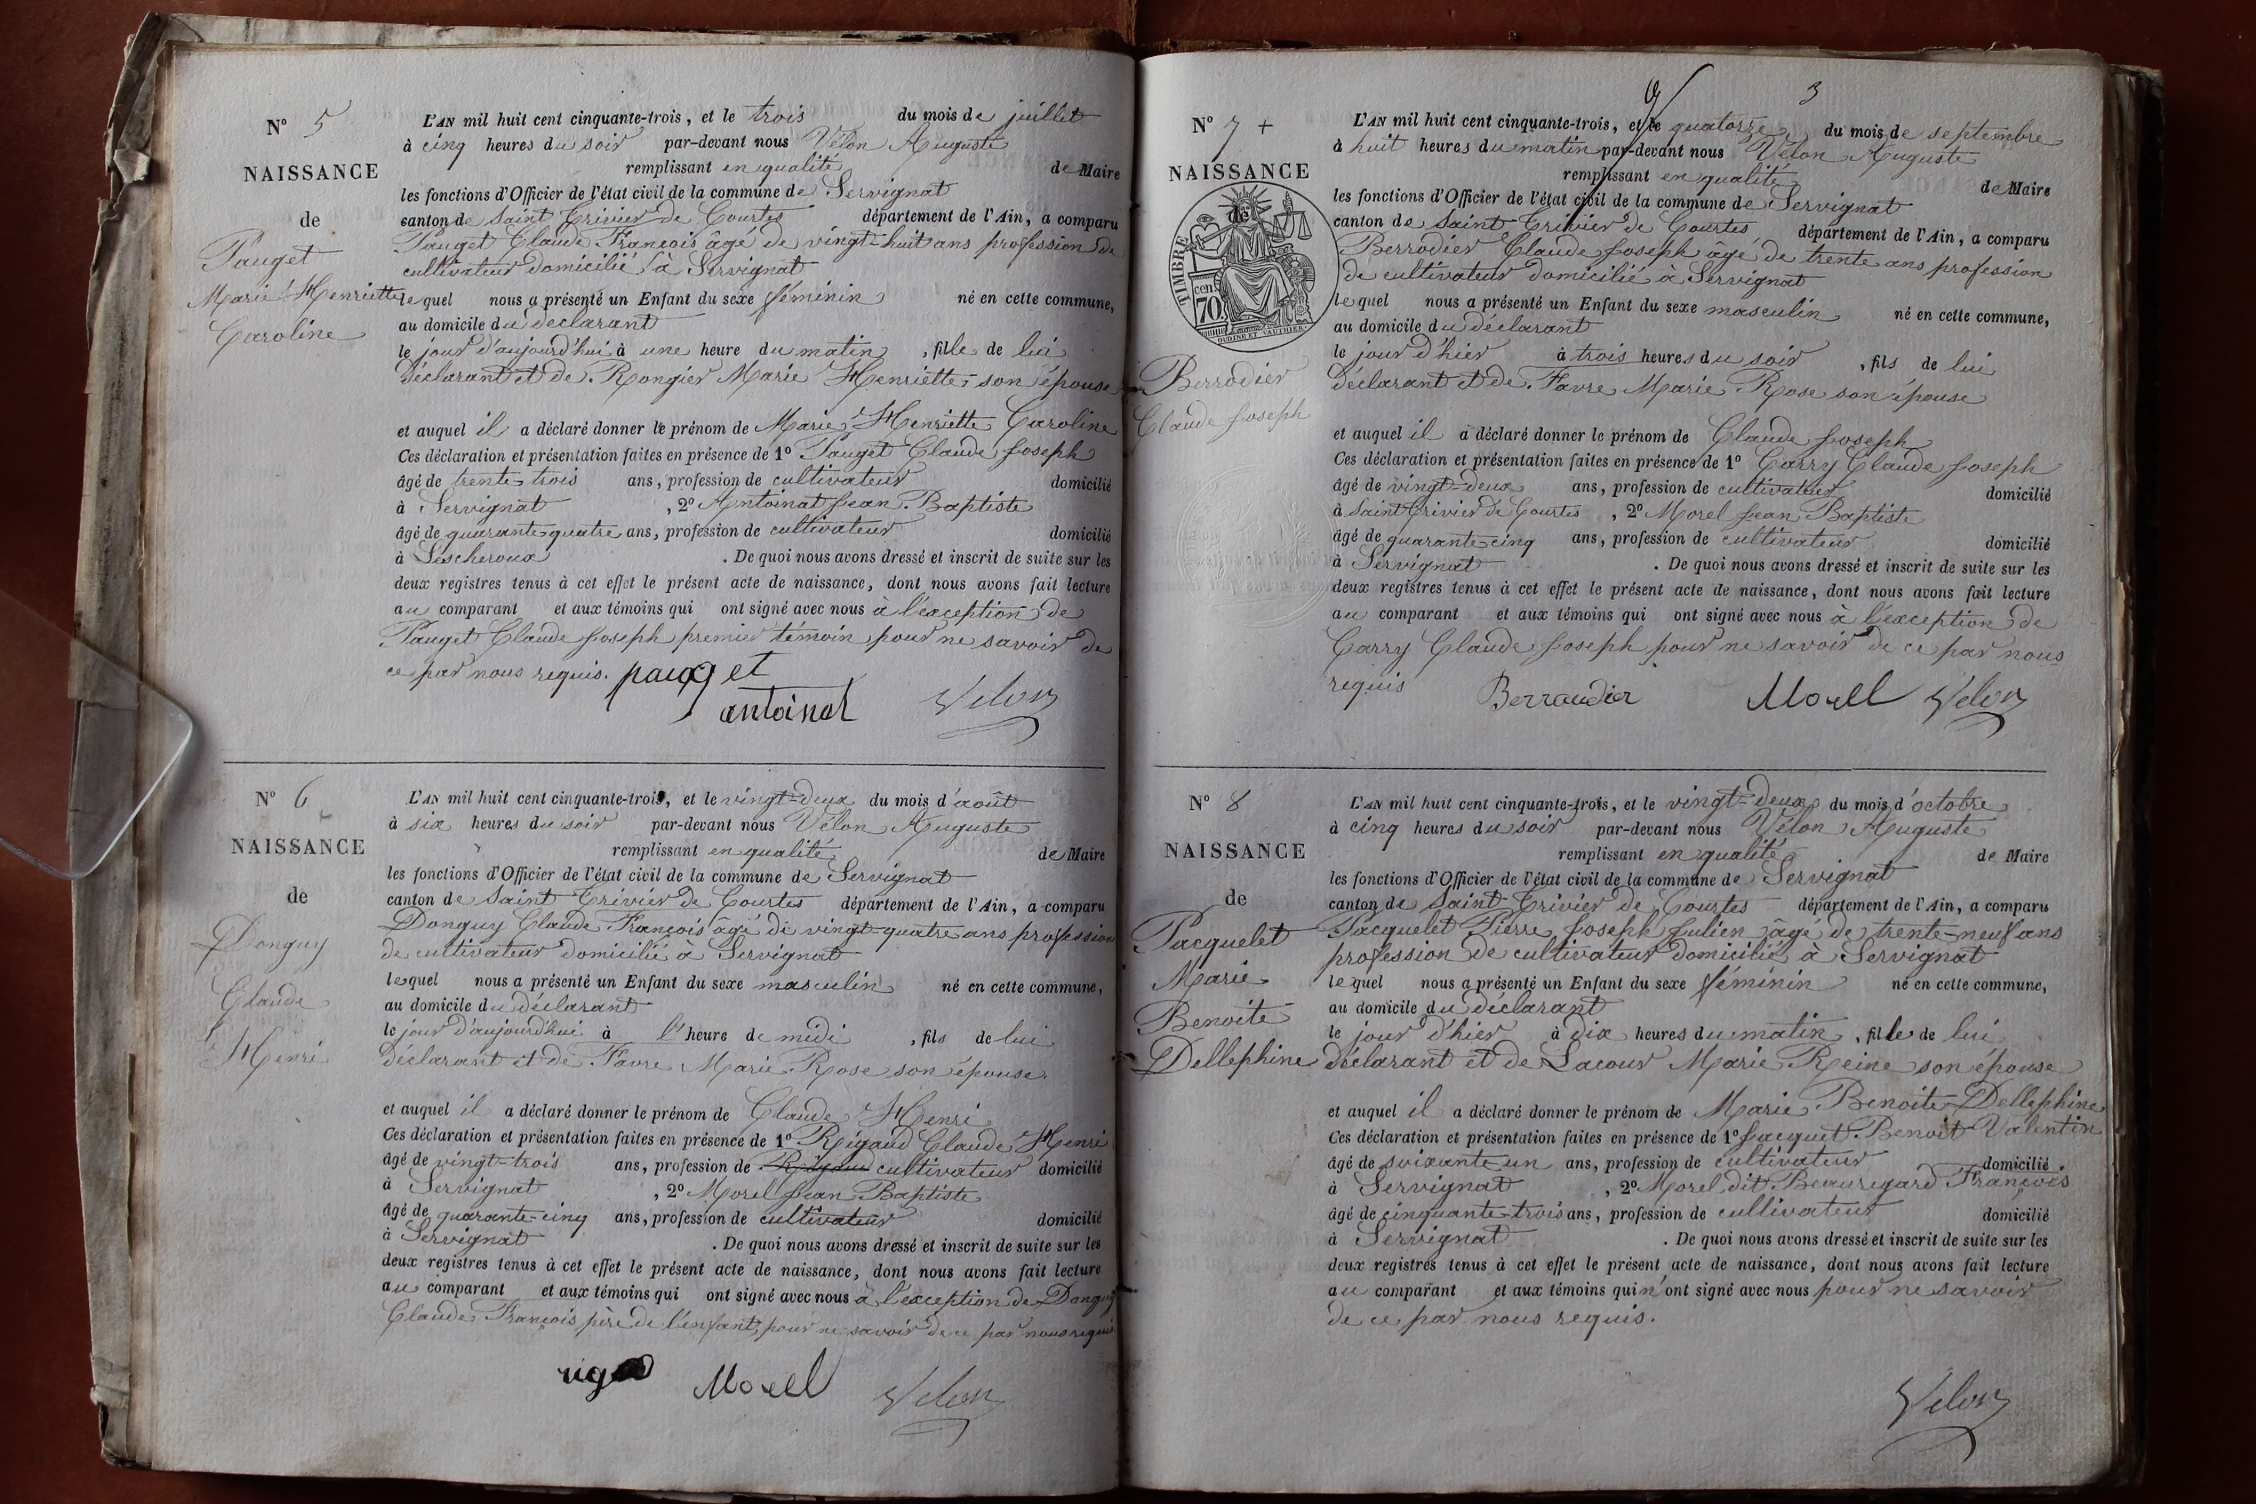 N° 5
NAISSANCE
de
Pauget
Marie Henriette
Caroline
L'AN mil huit cent cinquante-trois, et le trois du mois de juillet
à cinq heures du soir par-devant nous Vélon Auguste
remplissant en qualité de Maire
les fonctions d'Officier de l'état civil de la commune de Servignat
canton de Saint Trivier de Courtes département de l'Ain, a comparu
Pauget Claude François âgé de vingt-huit ans profession de
cultivateur domicilié à Servignat
lequel nous a présenté un Enfant du sexe féminin né en cette commune,
au domicile du déclarant
le jour d'aujourd'hui à une heure du matin, fille de lui
déclarant et de Rongier Marie Henriette son épouse
et auquel il a déclaré donner le prénom de Marie Henriette Caroline
Ces déclaration et présentation faites en présence de 1° Pauget Claude Joseph
âgé de trente-trois ans, profession de cultivateur domicilié
à Servignat, 2° Antoinat Jean Baptiste
âgé de quarante-quatre ans, profession de cultivateur domicilié
à Lescheroux. De quoi nous avons dressé et inscrit de suite sur les
deux registres tenus à cet effet le présent acte de naissance, dont nous avons fait lecture
au comparant et aux témoins qui ont signé avec nous à l'exception de
Pauget Claude Joseph premier témoin pour ne savoir de
ce par nous requis. pauget
antoinat Velon
N° 6
NAISSANCE
de
Donguy
Claude
Henri
L'AN mil huit cent cinquante-trois, et le vingt-deux du mois d'août
à six heures du soir par-devant nous Vélon Auguste
remplissant en qualité de Maire
les fonctions d'Officier de l'état civil de la commune de Servignat
canton de Saint Trivier de Courtes département de l'Ain, a comparu
Donguy Claude François âgé de vingt-quatre ans profession
de cultivateur domicilié à Servignat
lequel nous a présenté un Enfant du sexe masculin né en cette commune,
au domicile du déclarant
le jour d'aujourd'hui à l'heure de midi, fils de lui
déclarant et de Favre Marie Rose son épouse.
et auquel il a déclaré donner le prénom de Claude Henri
Ces déclaration et présentation faites en présence de 1° Rigaud Claude Henri
âgé de vingt-trois ans, profession de Rigaud cultivateur domicilié
à Servignat, 2° Morel Jean Baptiste
âgé de quarante-cinq ans, profession de cultivateur domicilié
à Servignat. De quoi nous avons dressé et inscrit de suite sur les
deux registres tenus à cet effet le présent acte de naissance, dont nous avons fait lecture
au comparant et aux témoins qui ont signé avec nous à l'exception de Donguy
Claude François père de l'enfant, pour ne savoir de ce par nous requis
Morel Velon
3
N° 7 +
NAISSANCE
de
TIMBRE
70 cent.
OUDINÉ ET GAUTHIER
Berrodier
Claude Joseph
L'AN mil huit cent cinquante-trois, et le quatorze du mois de septembre
à huit heures du matin par-devant nous Vélon Auguste
remplissant en qualité de Maire
les fonctions d'Officier de l'état civil de la commune de Servignat
canton de Saint Trivier de Courtes département de l'Ain, a comparu
Berrodier Claude Joseph âgé de trente ans profession
de cultivateur domicilié à Servignat
lequel nous a présenté un Enfant du sexe masculin né en cette commune,
au domicile du déclarant
le jour d'hier à trois heures du soir, fils de lui
déclarant et de Favre Marie Rose son épouse
et auquel il a déclaré donner le prénom de Claude Joseph
Ces déclaration et présentation faites en présence de 1° Carry Claude Joseph
âgé de vingt-deux ans, profession de cultivateur domicilié
à Saint Trivier de Courtes, 2° Morel Jean Baptiste
âgé de quarante-cinq ans, profession de cultivateur domicilié
à Servignat. De quoi nous avons dressé et inscrit de suite sur les
deux registres tenus à cet effet le présent acte de naissance, dont nous avons fait lecture
au comparant et aux témoins qui ont signé avec nous à l'exception de
Carry Claude Joseph pour ne savoir de ce par nous
requis Berraudier Morel Velon
N° 8
NAISSANCE
de
Pacquelet
Marie
Benoite
Dellephine
L'AN mil huit cent cinquante-trois, et le vingt-deux du mois d'octobre
à cinq heures du soir par-devant nous Vélon Auguste
remplissant en qualité de Maire
les fonctions d'Officier de l'état civil de la commune de Servignat
canton de Saint-Trivier de Courtes département de l'Ain, a comparu
Pacquelet Pierre Joseph Julien âgé de trente-neuf ans
profession de cultivateur domicilié à Servignat
lequel nous a présenté un Enfant du sexe féminin né en cette commune,
au domicile du déclarant
le jour d'hier à dix heures du matin, fille de lui
déclarant et de Lacour Marie Reine son épouse
et auquel il a déclaré donner le prénom de Marie Benoite Dellephine
Ces déclaration et présentation faites en présence de 1° Jacquet Benoit Valentin
âgé de soixante un ans, profession de cultivateur domicilié
à Servignat, 2° Morel dit Beauregard François
âgé de cinquante-trois ans, profession de cultivateur domicilié
à Servignat. De quoi nous avons dressé et inscrit de suite sur les
deux registres tenus à cet effet le présent acte de naissance, dont nous avons fait lecture
au comparant et aux témoins qui n'ont signé avec nous pour ne savoir
de ce par nous requis.
Velon